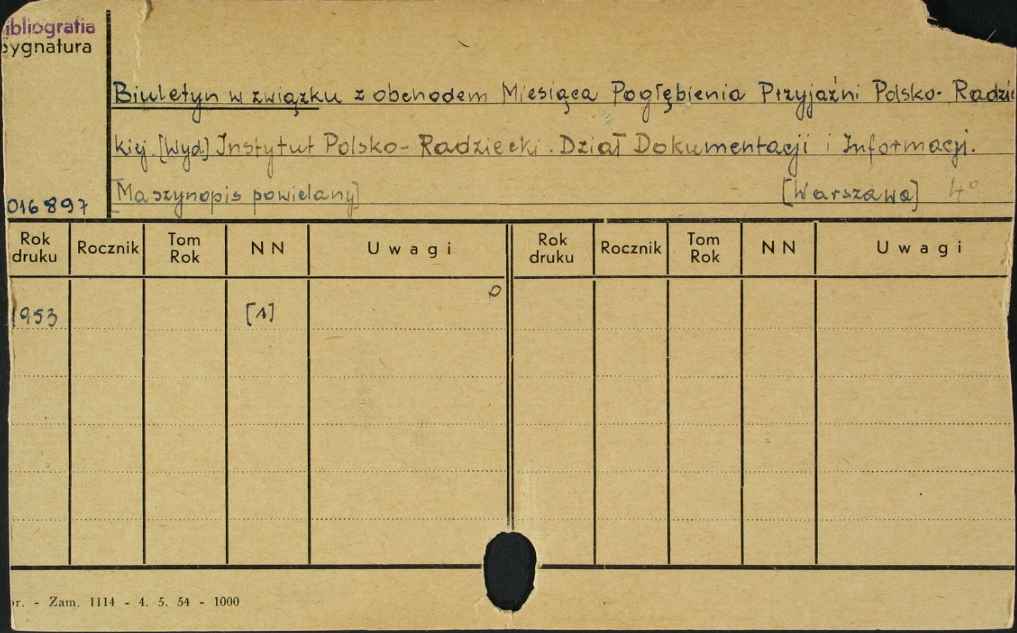 ibliografia
Sygnatura
Biuletyn w związku z obchodem Miesiąca Pogłębienia Przyjaźni Polsko-Radzie
kiej. [Wyd] Instytut Polsko-Radziecki. Dział Dokumentacji i Informacji.
[Maszynopis powielany] [Warszawa] 4°
016897
Rok druku Rocznik Tom Rok NN Uwagi Rok druku Rocznik Tom Rok NN Uwagi
1953 [1]
r. - Zam. 1114 - 4. 5. 54 - 1000